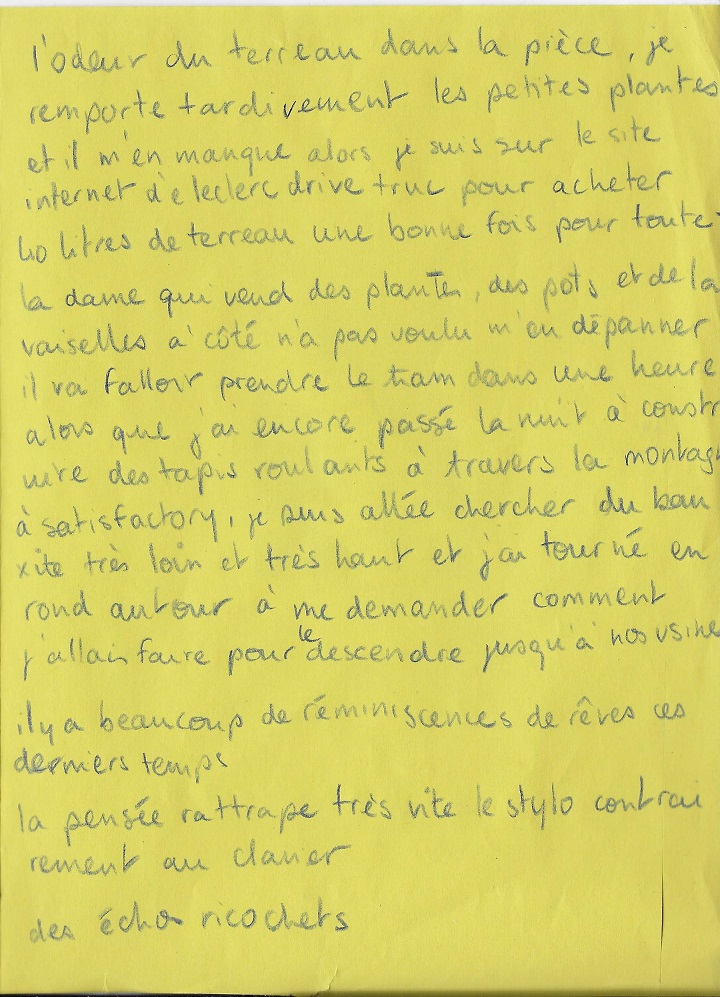 l'odeur du terreau dans la pièce, je
remporte tardivement les petites plantes
et il m'en manque alors je suis sur le site
internet d'e leclerc drive truc pour acheter
40 litres de terreau une bonne fois pour toute
la dame qui vend des plantes, des pots et de la
vaiselles à côté n'a pas voulu m'en dépanner
il va falloir prendre le tram dans une heure
alors que j'ai encore passé la nuit à constr
uire des tapis roulants à travers la montag
à satisfactory, je suis allée chercher du bau
xite très loin et très haut et j'ai tourné en
rond autour à me demander comment
j'allais faire pour le descendre jusqu'à nos usine
il y a beaucoup de réminiscences de rêves ces
derniers temps
la pensée rattrape très vite le stylo contrai
rement au clavier
des échos ricochets